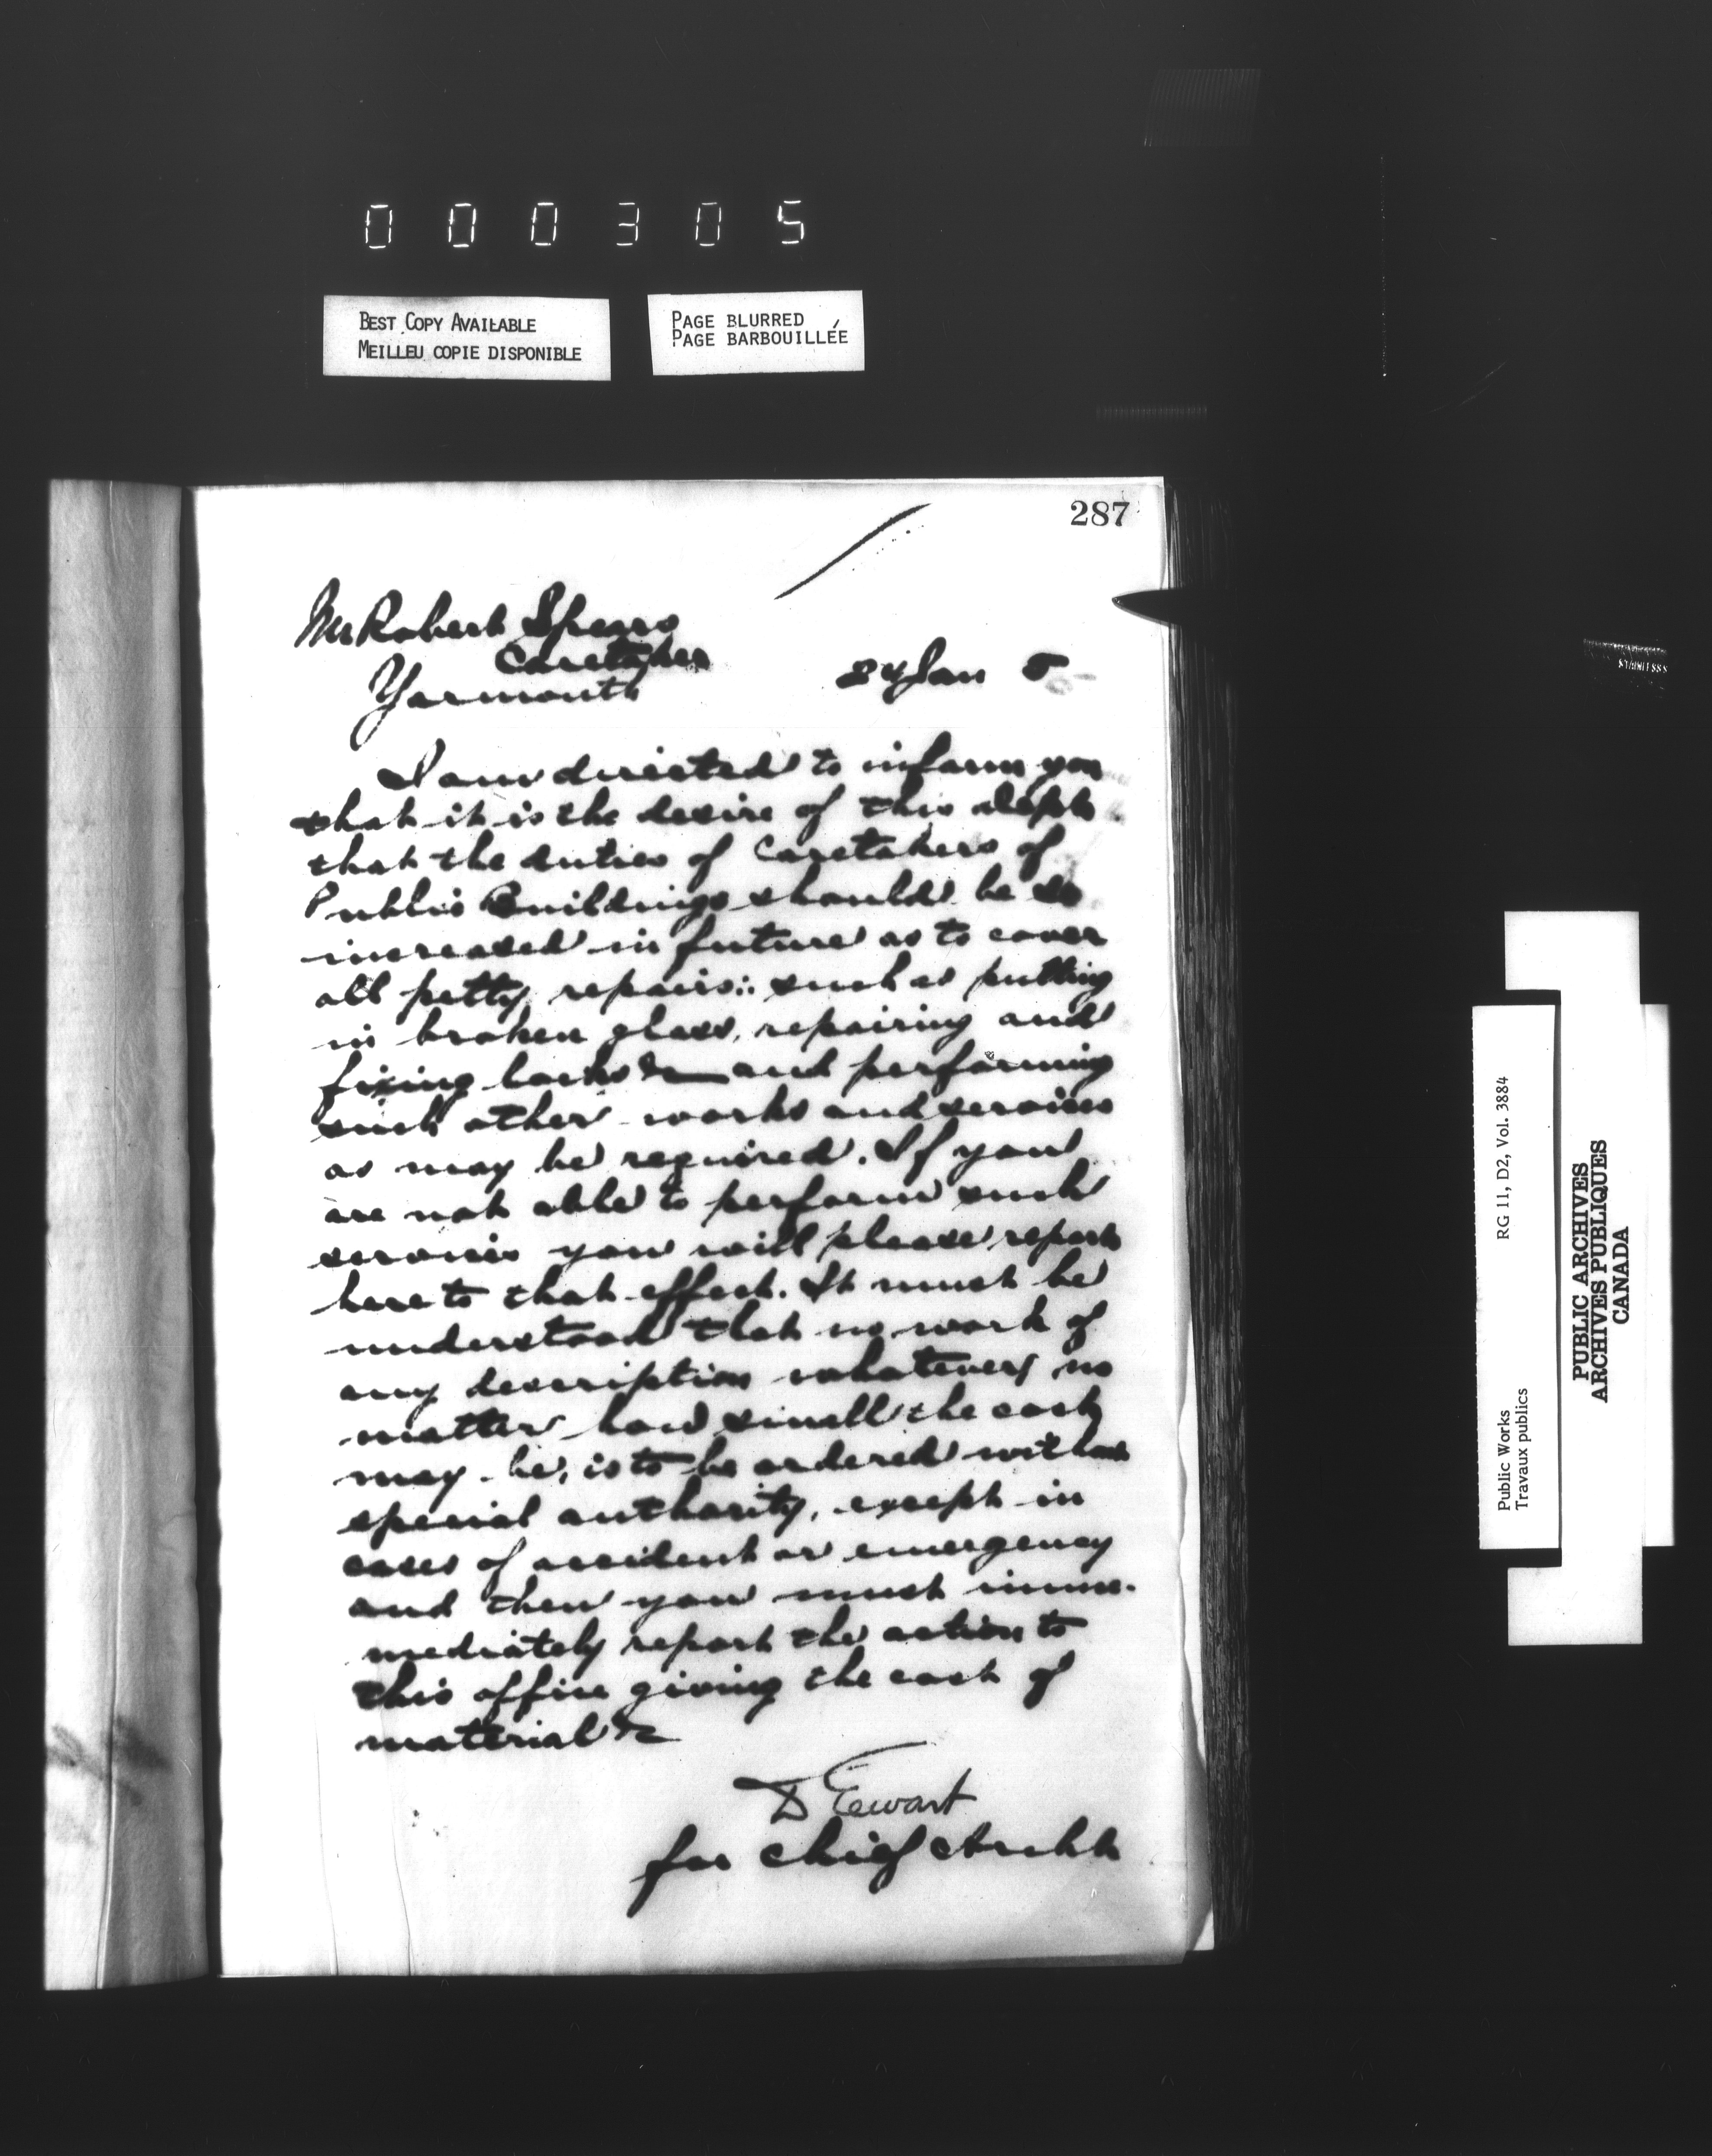 000305
BEST COPY AVAILABLE
MEILLEU COPIE DISPONIBLE
PAGE BLURRED
PAGE BARBOUILLÉE
287
Mr Robert Spears
Caretaker
Yarmouth
24 Jan 5
I am directed to inform you
that it is the desire of this Deptt
that the duties of Caretakers of
Public Buildings should be so
increased in future as to cover
all petty repairs: such as putting
in broken glass, repairing and
fixing locks &c and performing
such other works and services
as may be required. If you
are not able to perform such
services you will please report
here to that effect. It must be
understood that no work of
any description whatever, no
matter how small the cost
may be, is to be ordered without
special authority, except in
cases of accident or emergency
and then you must imme-
mediately report the action to
this office giving the cost of
material &c
D Ewart
for Chief Archt
Public Works
Travaux publics
RG 11, D2, Vol. 3884
PUBLIC ARCHIVES
ARCHIVES PUBLIQUES
CANADA